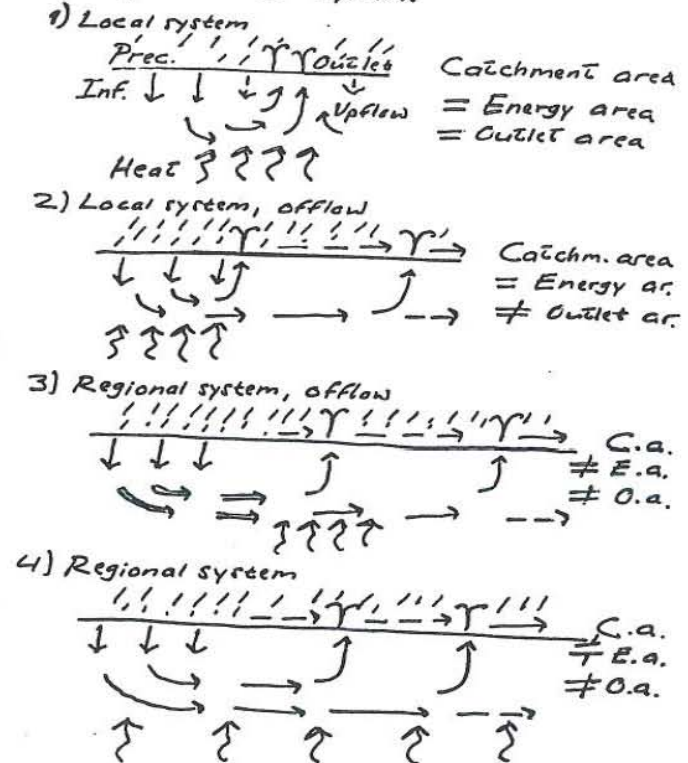 1) Local system
Prec. Outlet
Inf. Upflow
Heat
Catchment area
= Energy area
= Outlet area
2) Local system, offlow
Catchm. area
= Energy ar.
≠ Outlet ar.
3) Regional system, offlow
C.a.
≠ E.a.
≠ O.a.
4) Regional system
C.a.
≠ E.a.
≠ O.a.